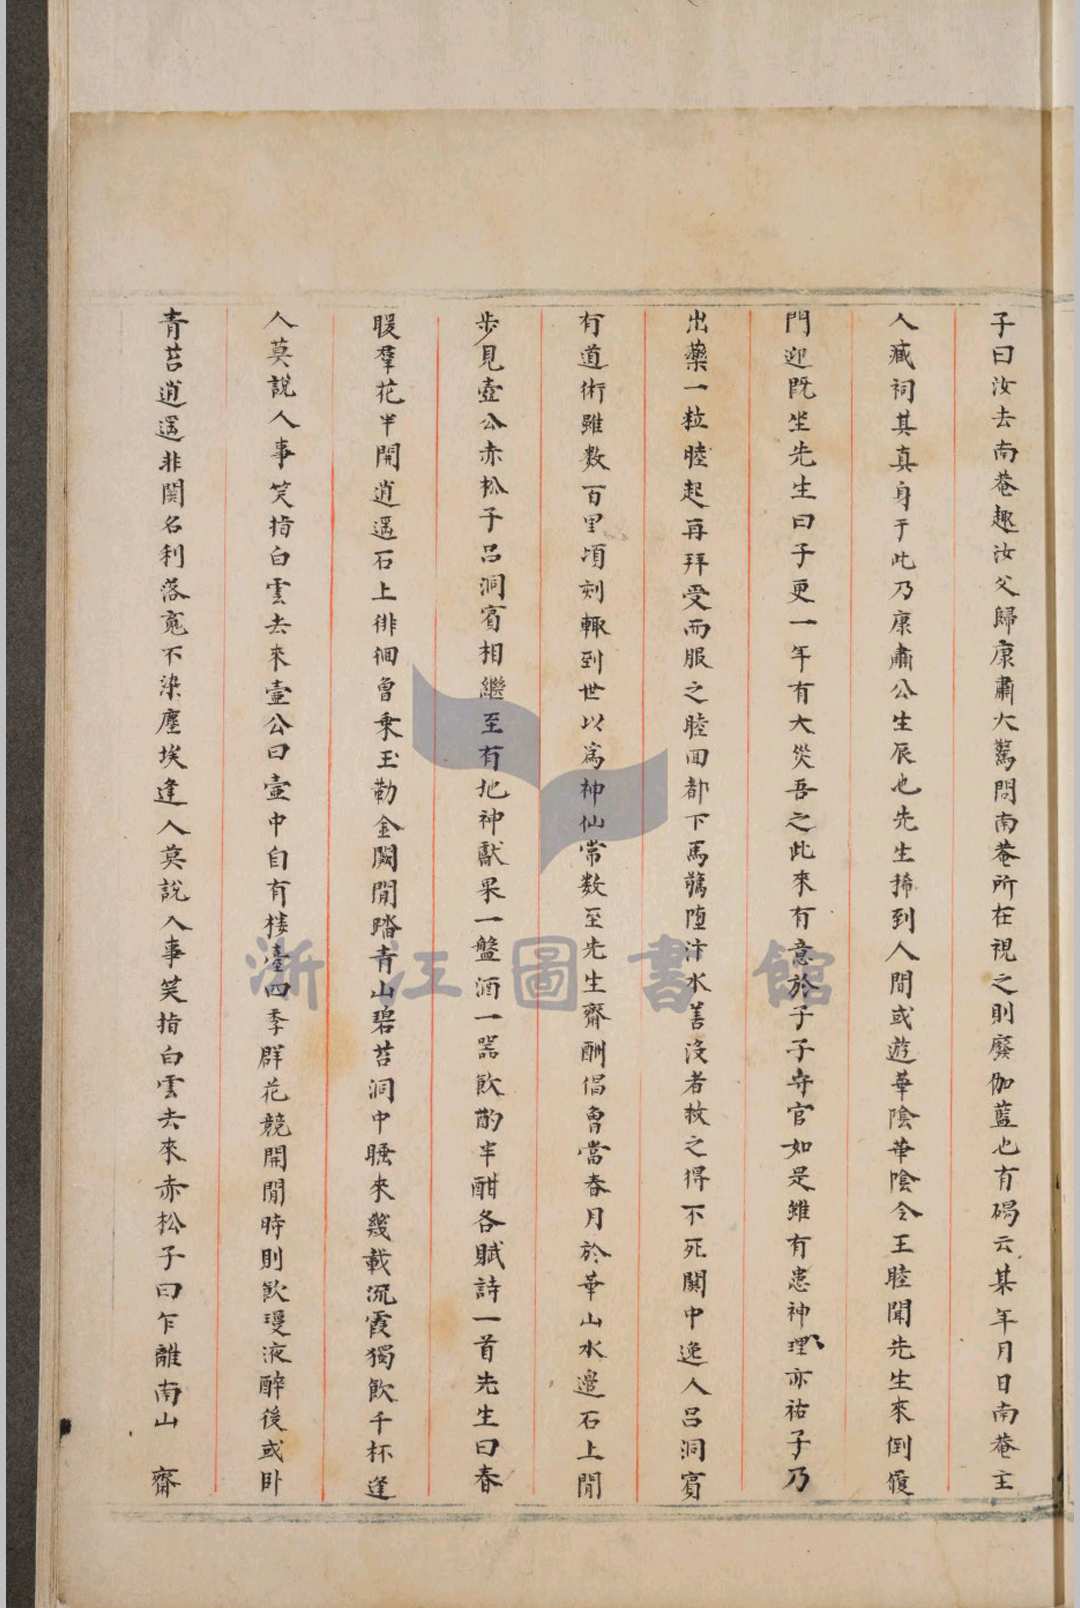 子曰汝去南菴趣汝父歸康肅大驚問南菴所在視之則廢伽藍也有碣云某年月日南菴主
人臧祠其真身于此乃康肅公生辰也先生掃到人間或遊華陰華陰令王睦聞先生來倒履
門迎既坐先生曰子更一年有大災吾之此來有意於子子守官如是雖有患神理亦祐子乃
出藥一粒睦起再拜受而服之睦回都下馬驚墮汴水善沒者救之得不死關中逸人呂洞賓
有道術雖數百里頃刻輒到世以為神仙常数至先生齋酬倡曾當春月於華山水邊石上閒
步見壺公赤松子呂洞賓相繼至有地神獻果一盤酒一器飲酌半酣各賦詩一首先生曰春
暖羣花半開逍遥石上徘徊曾乗玉勒金闕閒踏青山碧苔洞中睡來幾載沉霞獨飲千杯逢
人莫說人事笑指白雲去來壺公曰壷中自有楼臺四季群花競開閒時則飲瓊液醉後或卧
青苔逍遥非関名利落寬不染塵埃逢人莫說人事笑指白雲去來赤松子曰乍離南山 齋
浙江圖書館